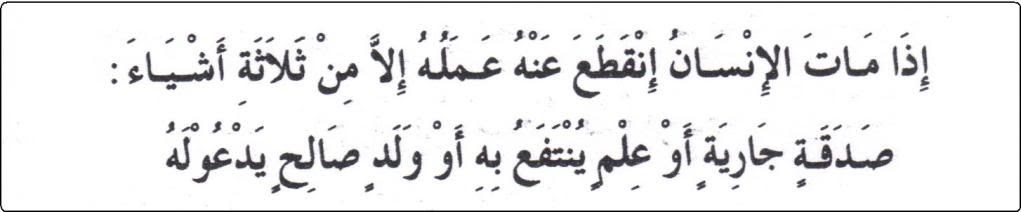 إِذَا مَاتَ الإِنْسَانُ إِنْقَطَعَ عَنْهُ عَمَلُهُ إِلاَّ مِنْ ثَلاَثَةِ أَشْيَاءَ :
صَدَقَةٍ جَارِيَةٍ أَوْ عِلْمٍ يُنْتَفَعُ بِهِ أَوْ وَلَدٍ صَالِحٍ يَدْعُولَهُ